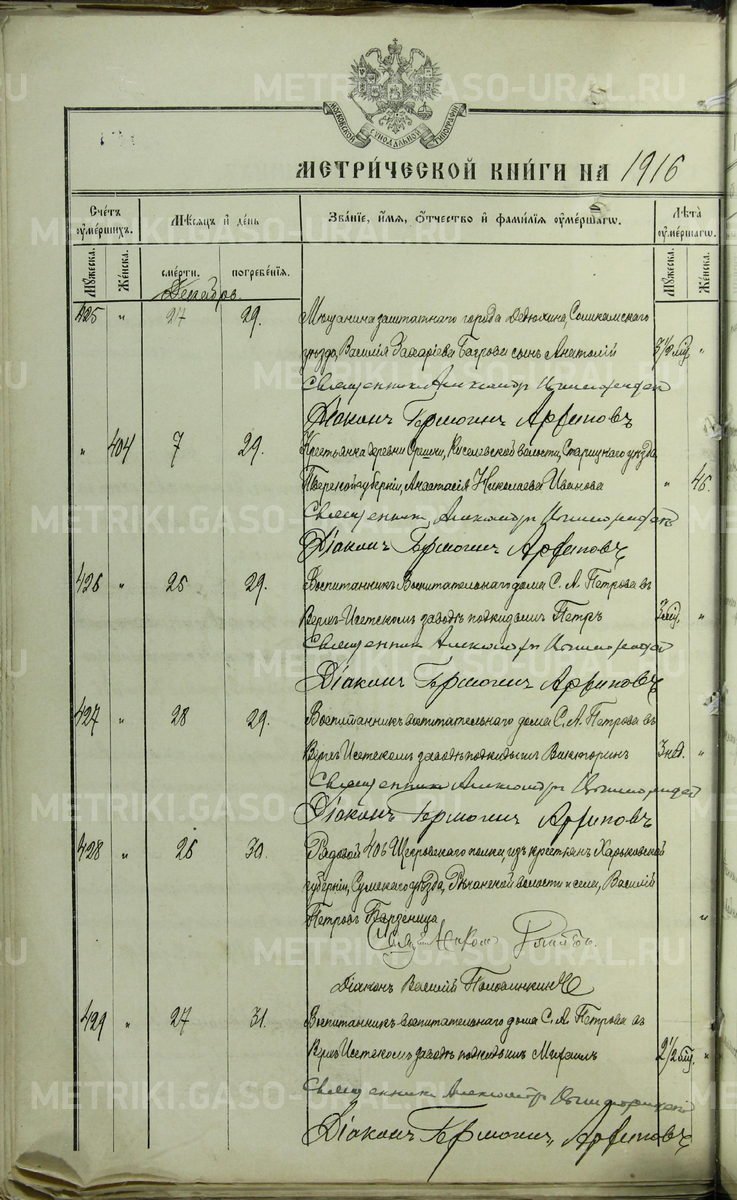 МОСКОВСКОЙ СѴНОДАЛЬНОЙ ТИПОГРАФІИ
МЕТРИ́ЧЕСКОЙ КНИ́ГИ НА 1916
Сче́тъ ᲂумершихъ.
Мѣ́сяцъ и де́нь
Зва́ніе, и́мя, ѻ҆́тчество и фами́лія ᲂуме́ршагѡ.
Лѣта ᲂуме́ршагѡ.
Мꙋжеска. Же́нска. сме́рти. погребе́нія. Мꙋжеска. Же́нска.
Декабрь.
425 " 27 29. Мѣщанина заштатнаго города Дедюхина, Соликамскаго
уѣзда, Василія Захаріева Багрова сынъ Анатолій
Священникъ Александръ
Діаконъ Гермогенъ Арфиповъ
" 404 7 29. Крестьянка деревни волости, Старицкаго уѣзда
Тверской губерніи, Анастасія Николаева Иванова " 46.
Священникъ Александръ
Діаконъ Гермогенъ Арфиповъ
426 " 25 29. Воспитанникъ Воспитательнаго дома С. А. Петрова въ
Верхъ-Исетскомъ заводѣ подкидышъ Петръ "
Священникъ Александръ
Діаконъ Гермогенъ Арфиповъ
427 " 28 29. Воспитанникъ воспитательнаго дома С. А. Петрова въ
Верхъ-Исетскомъ заводѣ подкидышъ Викторинъ 3 нед. "
Священникъ Александръ
Діаконъ Гермогенъ Арфиповъ
428 " 26 30. Рядовой 406 Щегровскаго полка, изъ крестьянъ Харьковской
губерніи, Сумскаго уѣзда, волости и села, Василій
Петровъ "
Діаконъ Василій
429 " 27 31. Воспитанникъ воспитательнаго дома С. А. Петрова въ
Верхъ-Исетскомъ заводѣ подкидышъ Михаилъ 2½ мѣс. "
Священникъ Александръ
Діаконъ Гермогенъ Арфиповъ
METRIKI.GASO-URAL.RU